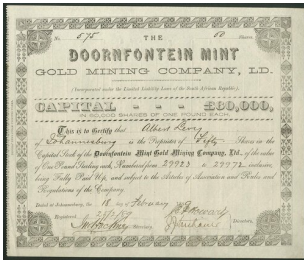 No. 575 50 Shares
THE
DOORNFONTEIN MINT
GOLD MINING COMPANY, LD.
(Incorporated under the Limited Liability Laws of the South African Republic.)
CAPITAL - - - £60,000,
IN 60,000 SHARES OF ONE POUND EACH.
This is to Certify that Albert Levy
of Johannesburg is the Proprietor of Fifty Shares in the
Capital Stock of the Doornfontein Mint Gold Mining Company, Ltd., of the value
of One Pound Sterling each, Numbered from 29923 to 29972 inclusive,
being Fully Paid Up, and subject to the Articles of Association and Rules and
Regulations of the Company.
Dated at Johannesburg, the 18 day of February
Registered
Secretary. Directors.